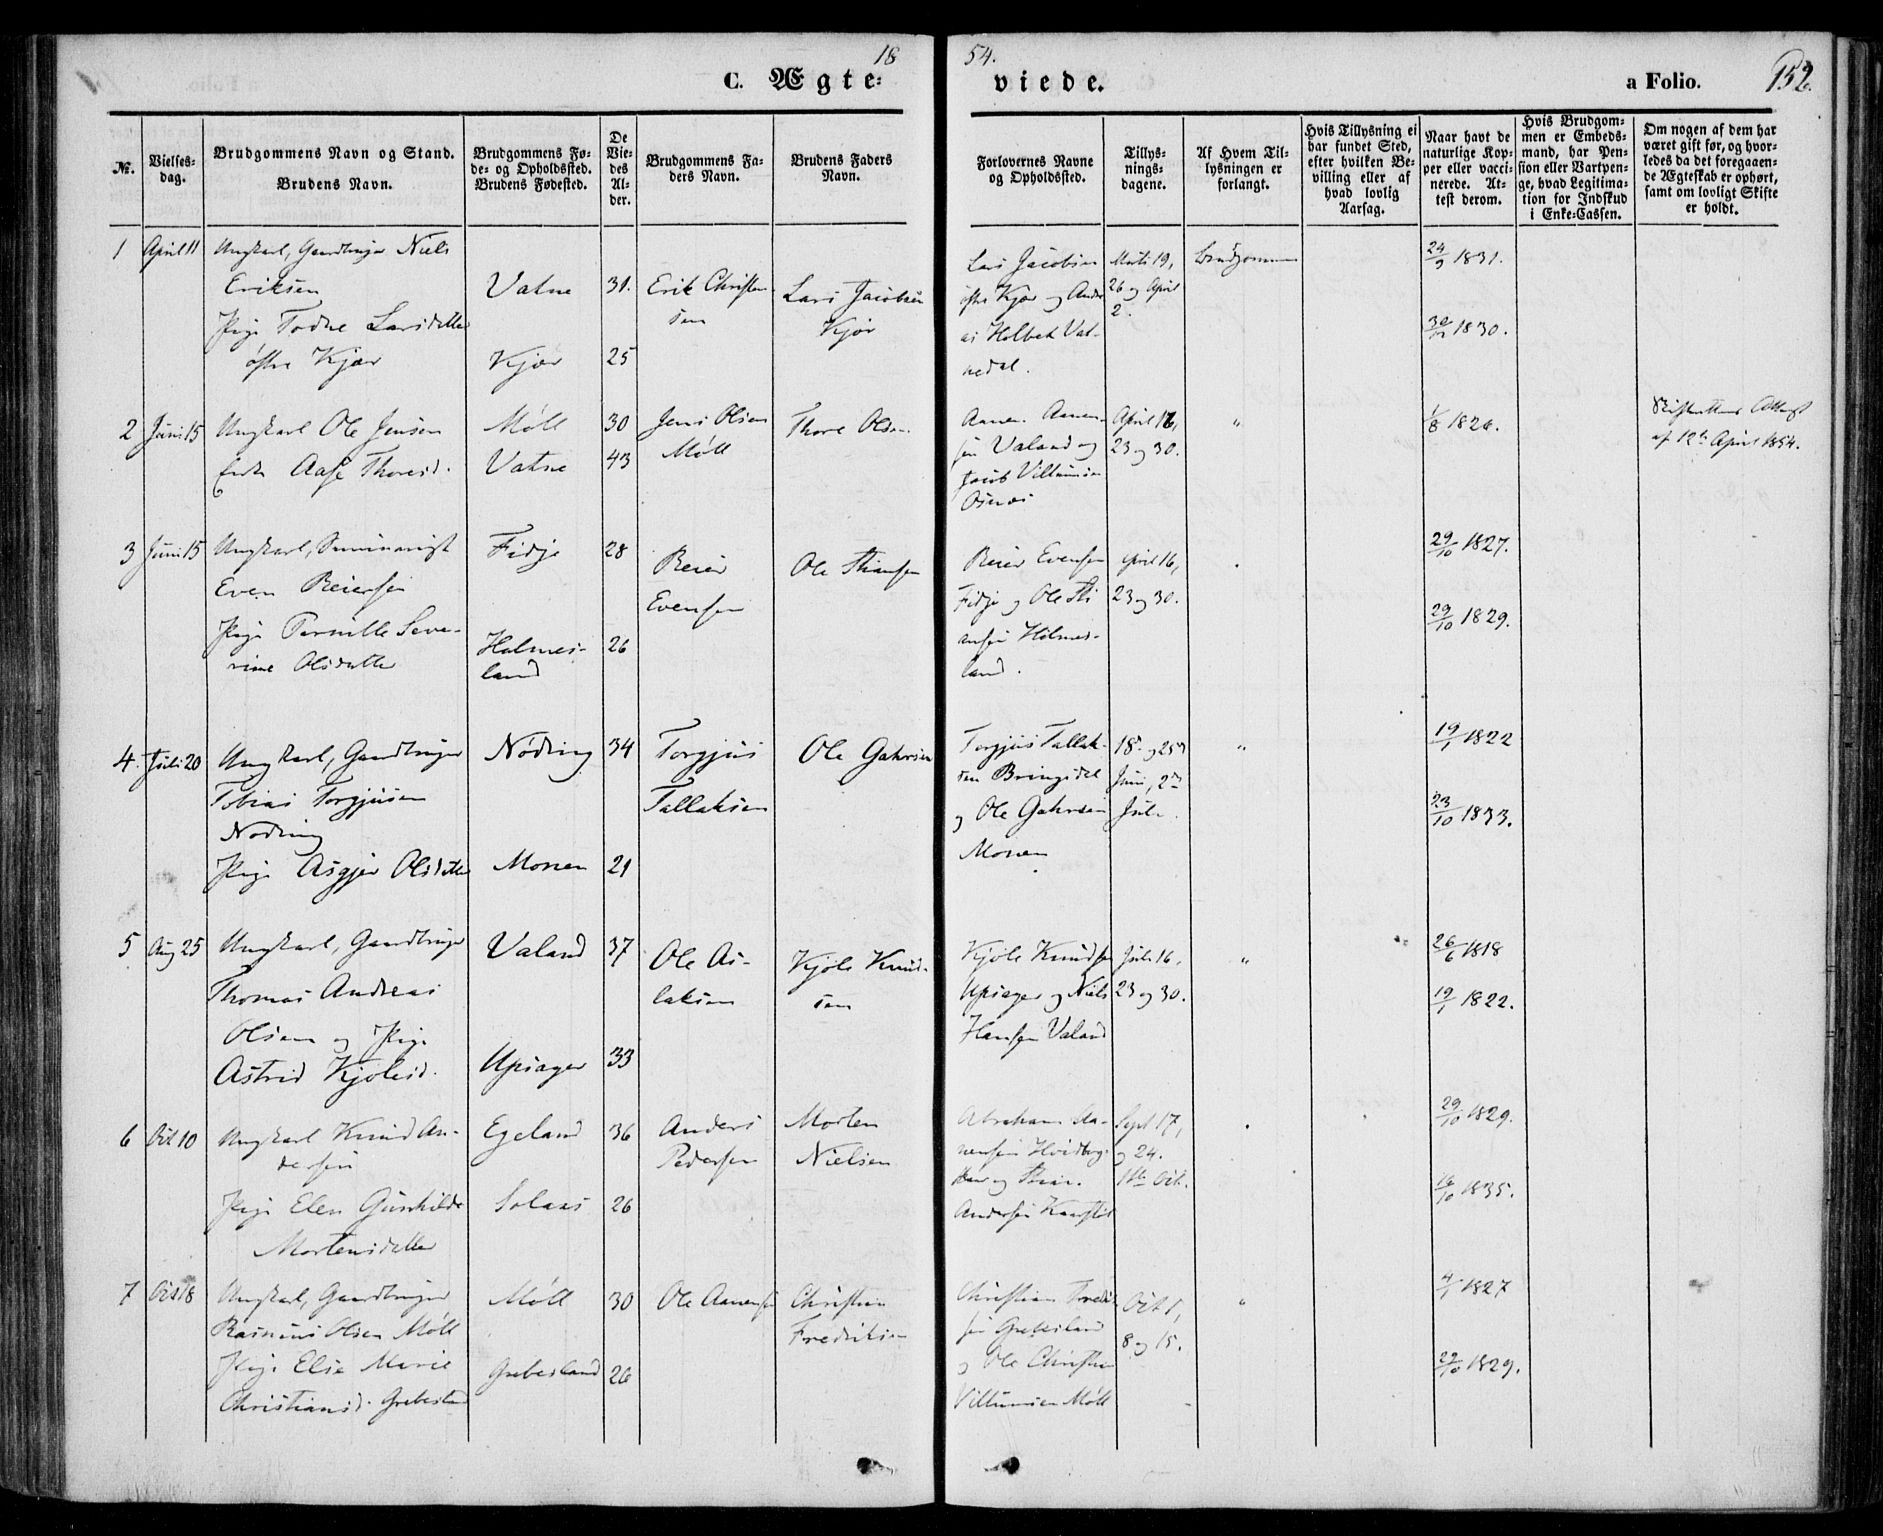 18 54.
C. Ægte-
viede.
a Folio.
152.
No.
Vielses-
dag.
Brudgommens Navn og Stand.
Brudens Navn.
Brudgommens Fø-
de- og Opholdssted.
Brudens Fødested.
De
Vie-
des
Al-
der.
Brudgommens Fa-
ders Navn.
Brudens Faders
Navn.
Forlovernes Navne
og Opholdssted.
Tillys-
nings-
dagene.
Af Hvem Til-
lysningen er
forlangt.
Hvis Tillysning ei
har fundet Sted,
efter hvilken Be-
villing eller af
hvad lovlig
Aarsag.
Naar havt de
naturlige Kop-
per eller vacci-
nerede. At-
test derom.
Hvis Brudgom-
men er Embeds-
mand, har Pen-
sion eller Vartpen-
ge, hvad Legitima-
tion for Indskud
i Enke-Cassen.
Om nogen af dem har
været gift før, og hvor-
ledes da det foregaaen-
de Ægteskab er ophørt,
samt om lovligt Skifte
er holdt.
1 April 11 Ungkarl, Gaardbruger Niels
Eriksen Vatne 31. Erik Christen-
sen
Lars Jacobsen
Kjør
Pige Todne Larsdatter
østre Kjær Kjær 25
Lars Jacobsen
østre Kjær og Andre-
as Holbek Vat-
nedal.
Marts 19,
26 og April
2.
Brudgommen
24/9 1831.
30/12 1830.
2 Juni 15 Ungkarl Ole Jensen Møll 30 Jens Olsen
Møll
Thore Olsen
Enke Aase Thoresd. Vatne 43
Aanen Aanen-
sen Valand og
Jacob Villumsen
April 16,
23 og 30.
"
1/8 1826.
Skifterettens Attest
af 12te April 1854.
3 Juni 15 Ungkarl, Seminarist Fidje 28
Even Reiersen
Reier
Evensen
Ole Stiansen
Pige Pernille Seve-
rine Olsdatter
Holmes-
land
26
Reier Evensen
Fidje og Ole Sti-
ansen Holmes-
land.
April 16,
23 og 30.
29/10 1827.
29/10 1829.
4. Juli 20 Ungkarl, Gaardbruger Nøding 34
Tobias Torgjusen
Nøding
Torgjus
Tallaksen
Ole Gahrsen
Pige Asgjer Olsdatter Monen 21
Torgjus Tallak-
sen Bringsdal
og Ole Gahrsen
Monen
18de og 25de
Juni, 2den
Juli.
"
19/1 1822
23/10 1833.
5 Aug 25 Ungkarl, Gaardbruger Valand 37
Thomas Andreas
Olsen og Pige
Astrid Kjølesd. Upsager 33
Ole As-
laksen
Kjøle Knud-
sen
Kjøle Knudsen
Upsager og Niels
Hansen Valand
Juli 16,
23 og 30.
"
26/6 1818
19/1 1822.
6 Oct 10 Ungkarl Knud An-
dersen
Egeland 36
Anders
Pedersen
Morten
Nielsen
Pige Elen Gunhilde
Mortensdatter
Solaas 26
Abraham Aa-
nensen
og Stian
Andersen
Sept 17,
og 24.
1ste Oct.
29/10 1829.
16/10 1835.
7 Oct 18 Ungkarl, Gaardbruger Møll 30
Rasmus Olsen Møll
Ole Aanensen
Christian
Fredriksen
Pige Else Marie
Christiansd. Grebesland
Grebesland 26
Christian Fredrik-
sen Grebesland
og Ole Christian
Villumsen Møll
Oct 1,
8 og 15.
"
4/1 1827
29/10 1829.